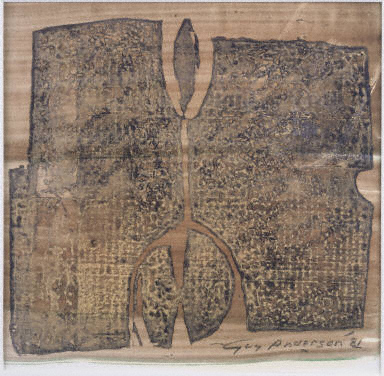 Guy Anderson '81